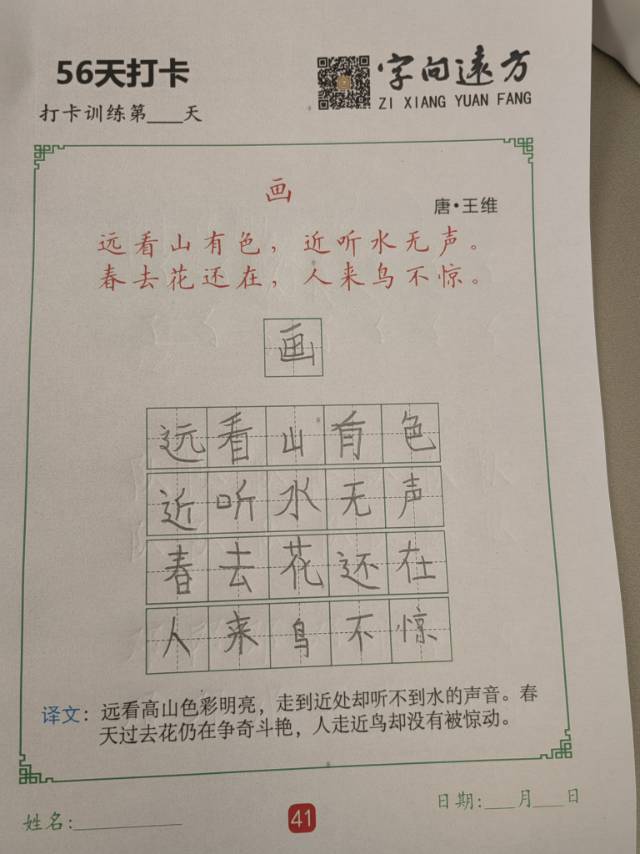 56天打卡
字向远方
打卡训练第____天
ZI XIANG YUAN FANG
画
唐·王维
远看山有色，近听水无声。
春去花还在，人来鸟不惊。
画
远看山有色
近听水无声
春去花还在
人来鸟不惊
译文：远看高山色彩明亮，走到近处却听不到水的声音。春
天过去花仍在争奇斗艳，人走近鸟却没有被惊动。
姓名:__________
41
日期:___月___日